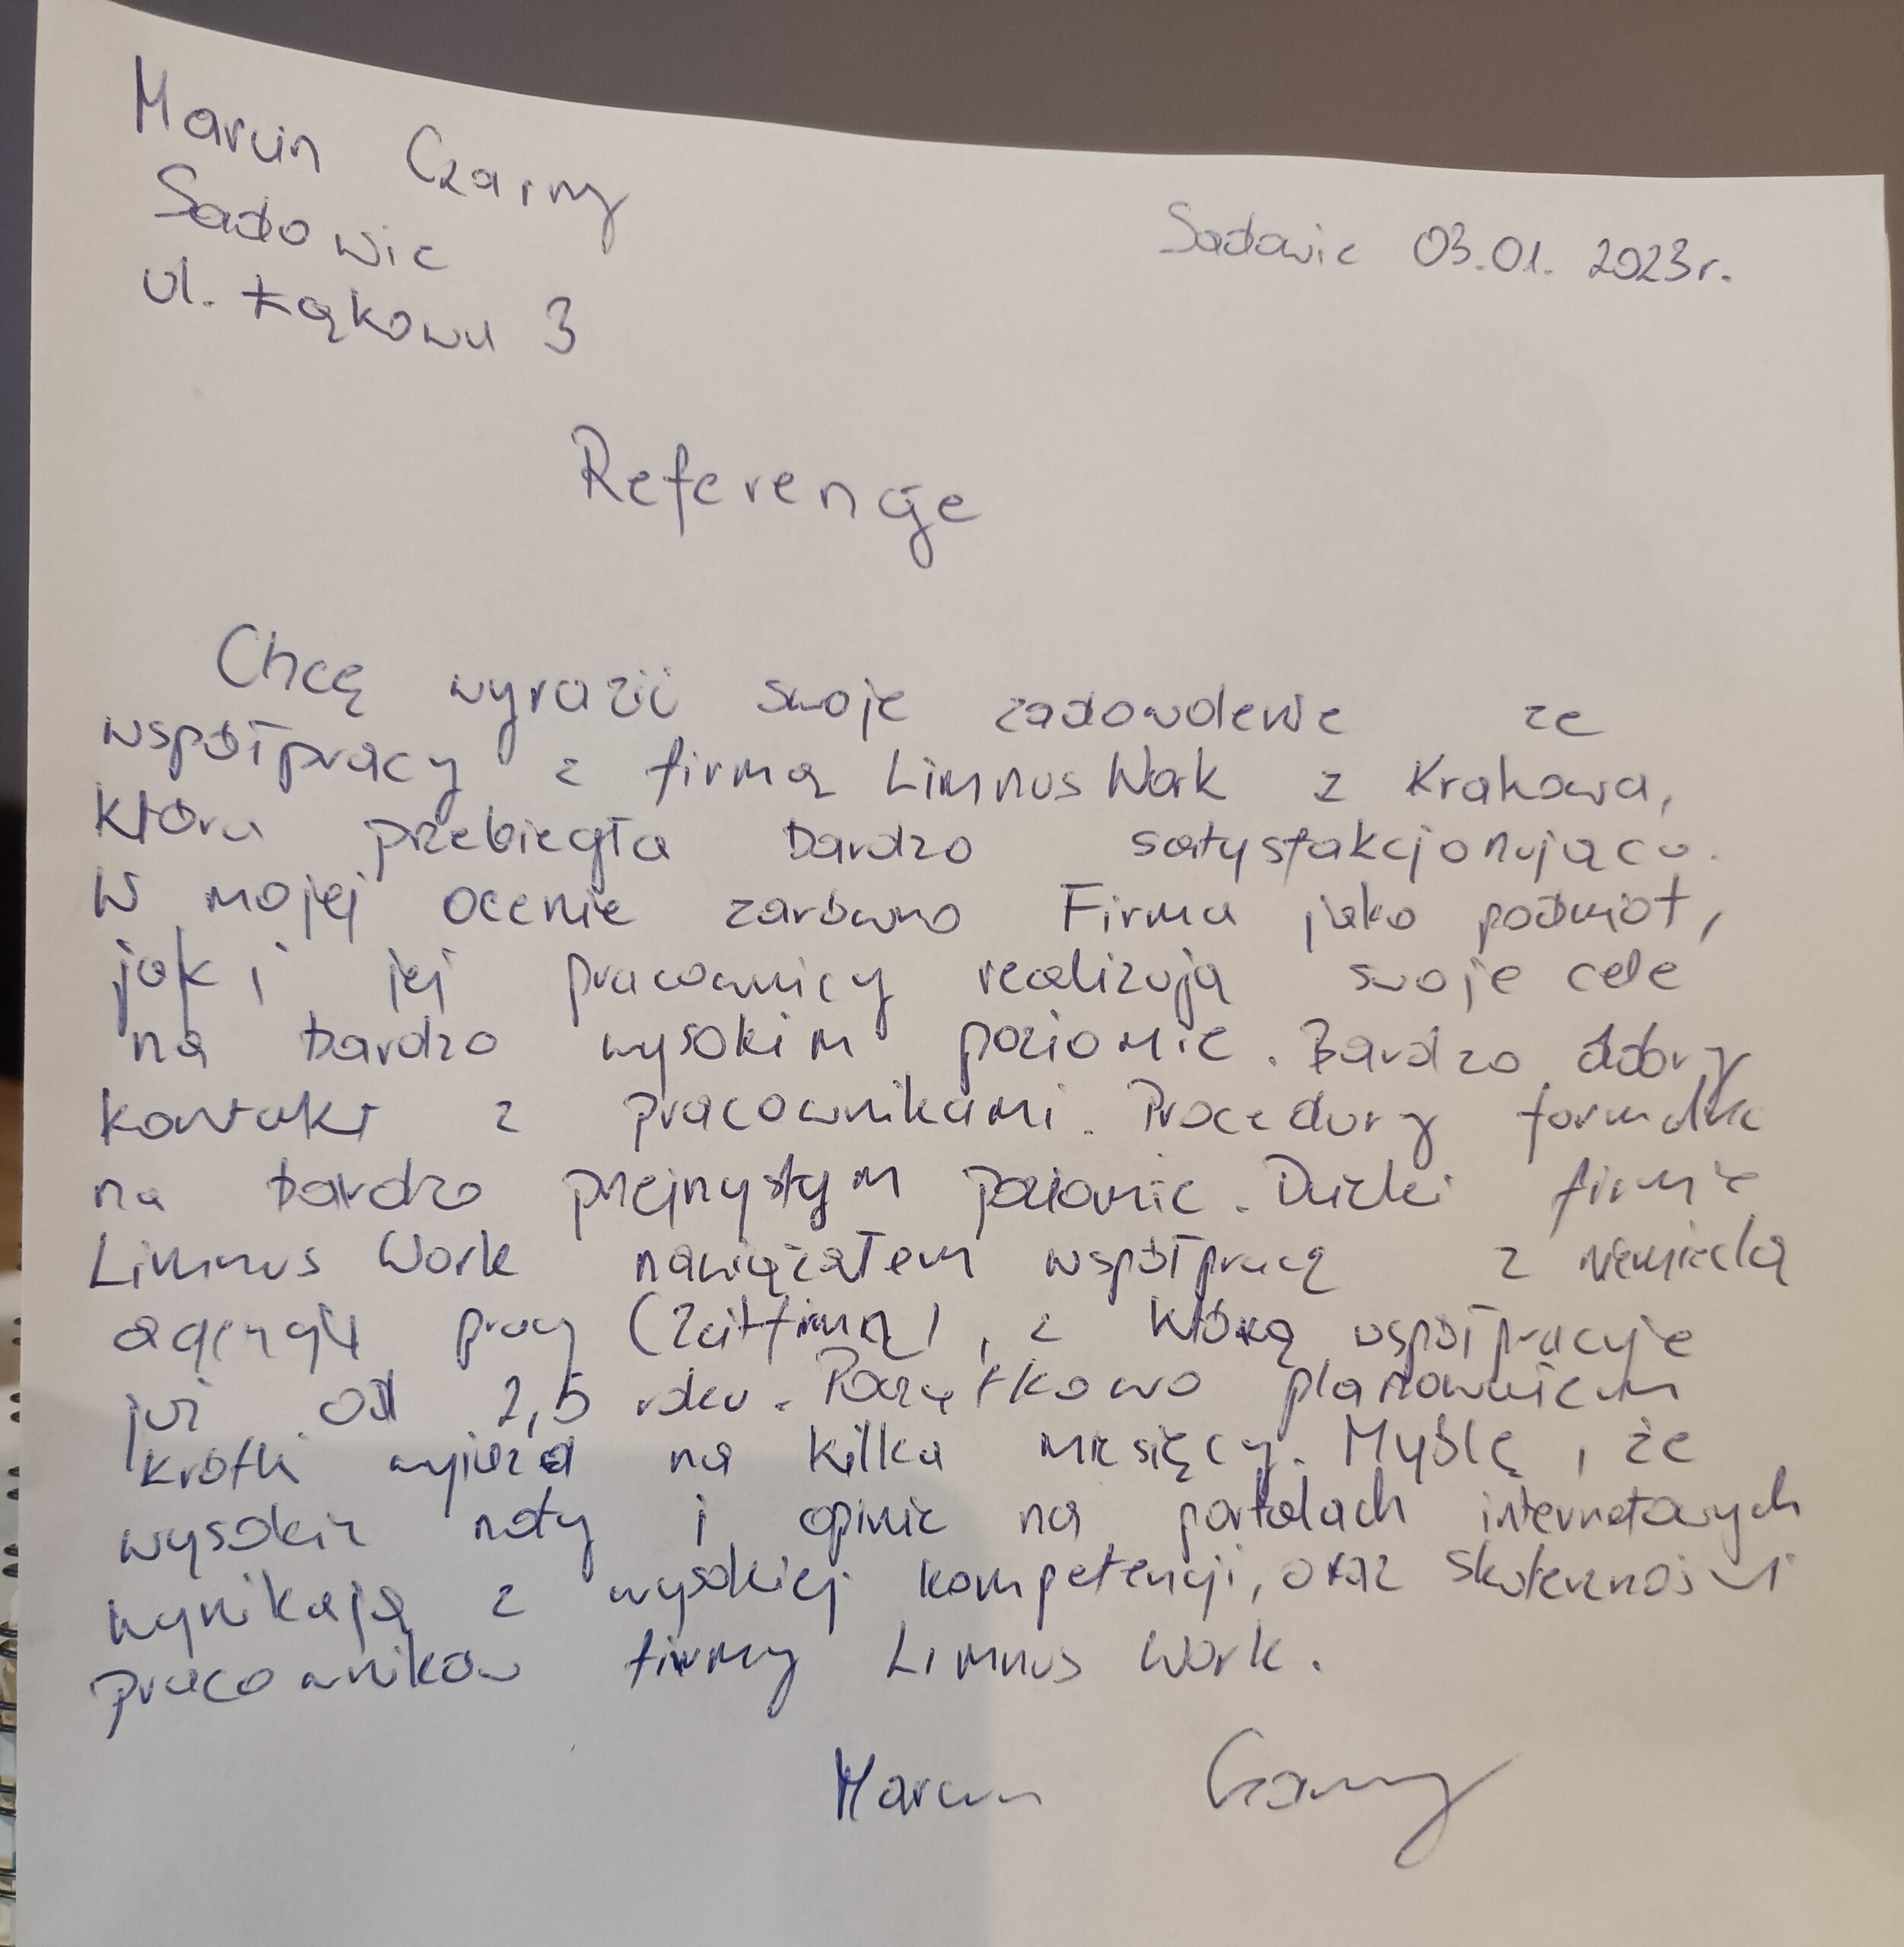 Marcin Czarny
Sadowie
ul. Łąkowa 3
Sadowie 03.01.2023r.
Referencje
Chcę wyrazić swoje zadowolenie ze
współpracy z firmą Limnus Work z Krakowa,
która przebiegła bardzo satysfakcjonująco.
W mojej ocenie zarówno Firma jako podmiot,
jak i jej pracownicy realizują swoje cele
na bardzo wysokim poziomie. Bardzo dobry
kontakt z pracownikami. Procedury formalne
na bardzo przejrzystym poziomie. Dzięki firmie
Limnus Work nawiązałem współpracę z niemiecką
agencją pracy (Zeitfirmą), z którą współpracuje
już od 2,5 roku. Początkowo planowałem
krótki wyjazd na kilka miesięcy. Myślę, że
wysokie noty i opinie na portalach internetowych
wynikają z wysokiej kompetencji, oraz skuteczności
pracowników firmy Limnus Work.
Marcin Czarny